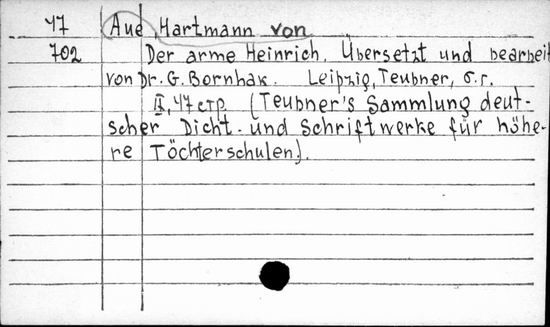 47 Aue Hartmann von
702 Der arme Heinrich. Übersetzt und bearbeit
von Dr. G. Bornhak. Leipzig, Teubner, б.г.
IX, 47 стр. (Teubner's Sammlung deut-
scher Dicht- und Schriftwerke für höhe-
re Töchterschulen).